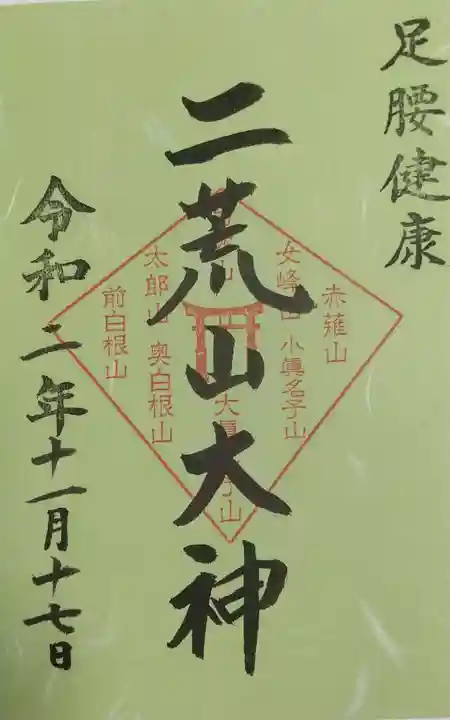 足腰健康
二荒山大神
赤薙山
女峰山
小眞名子山
太郎山
奥白根山
前白根山
令和二年十一月十七日